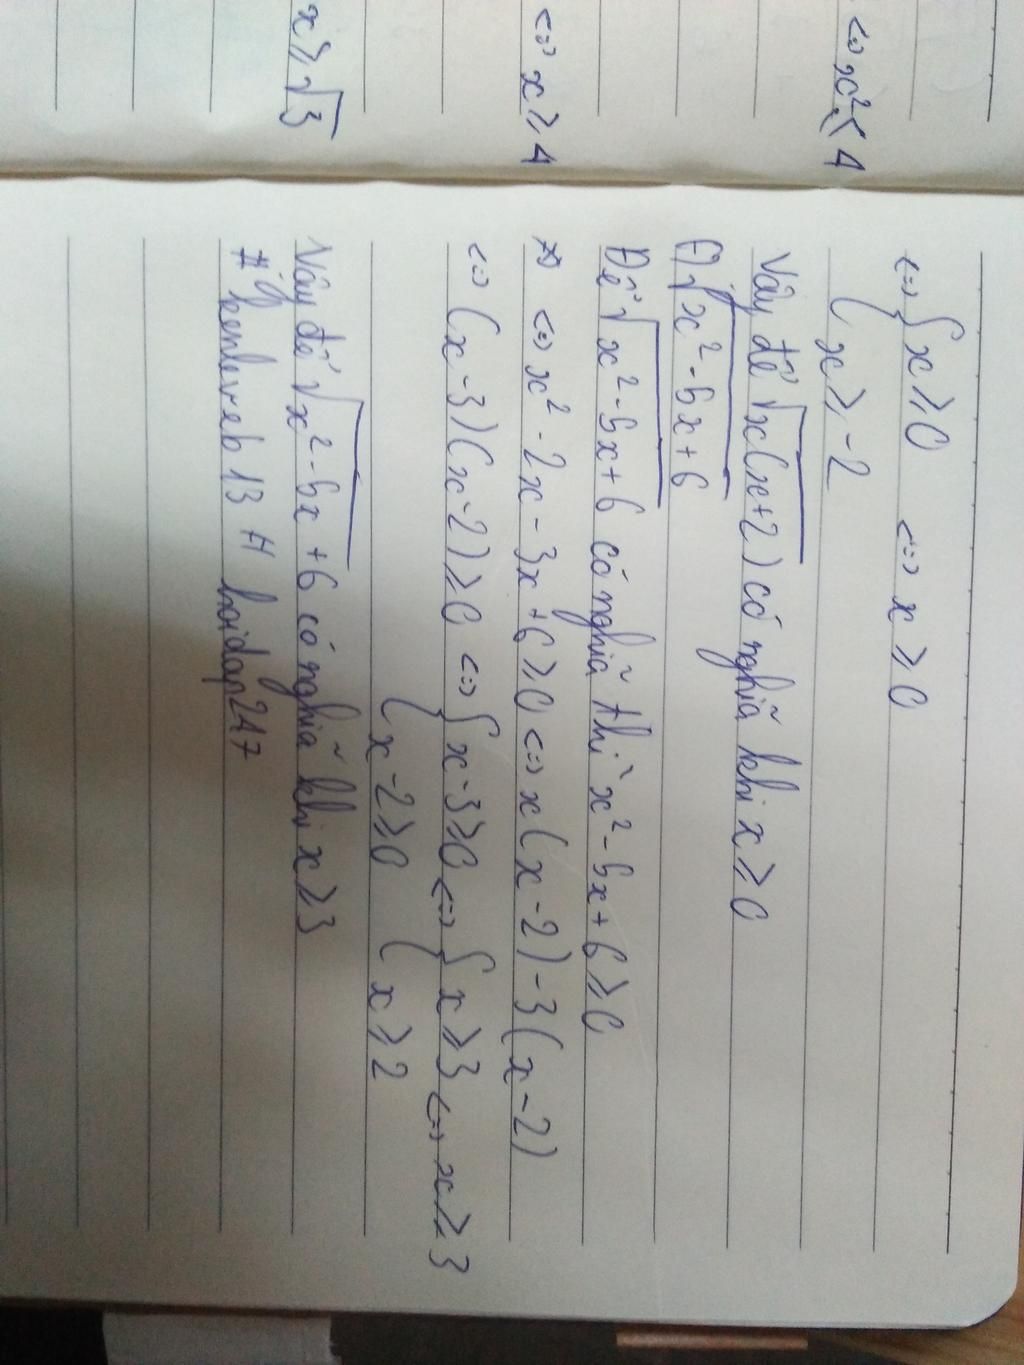 <=> x² ≤ 4
<=> x ≥ 4
x ≥ √3
<=> { x ≥ 0 <=> x ≥ 0
x ≥ -2
Vậy để √x(x+2) có nghĩa khi x ≥ 0
√x² - 5x + 6
Để √x² - 5x + 6 có nghĩa thì x² - 5x + 6 ≥ 0
<=> x² - 2x - 3x + 6 ≥ 0 <=> x(x - 2) - 3(x - 2)
<=> (x - 3)(x - 2) ≥ 0 <=> { x - 3 ≥ 0 <=> { x ≥ 3 <=> x ≥ 3
x - 2 ≥ 0 x ≥ 2
Vậy để √x² - 5x + 6 có nghĩa khi x ≥ 3
hoidap247